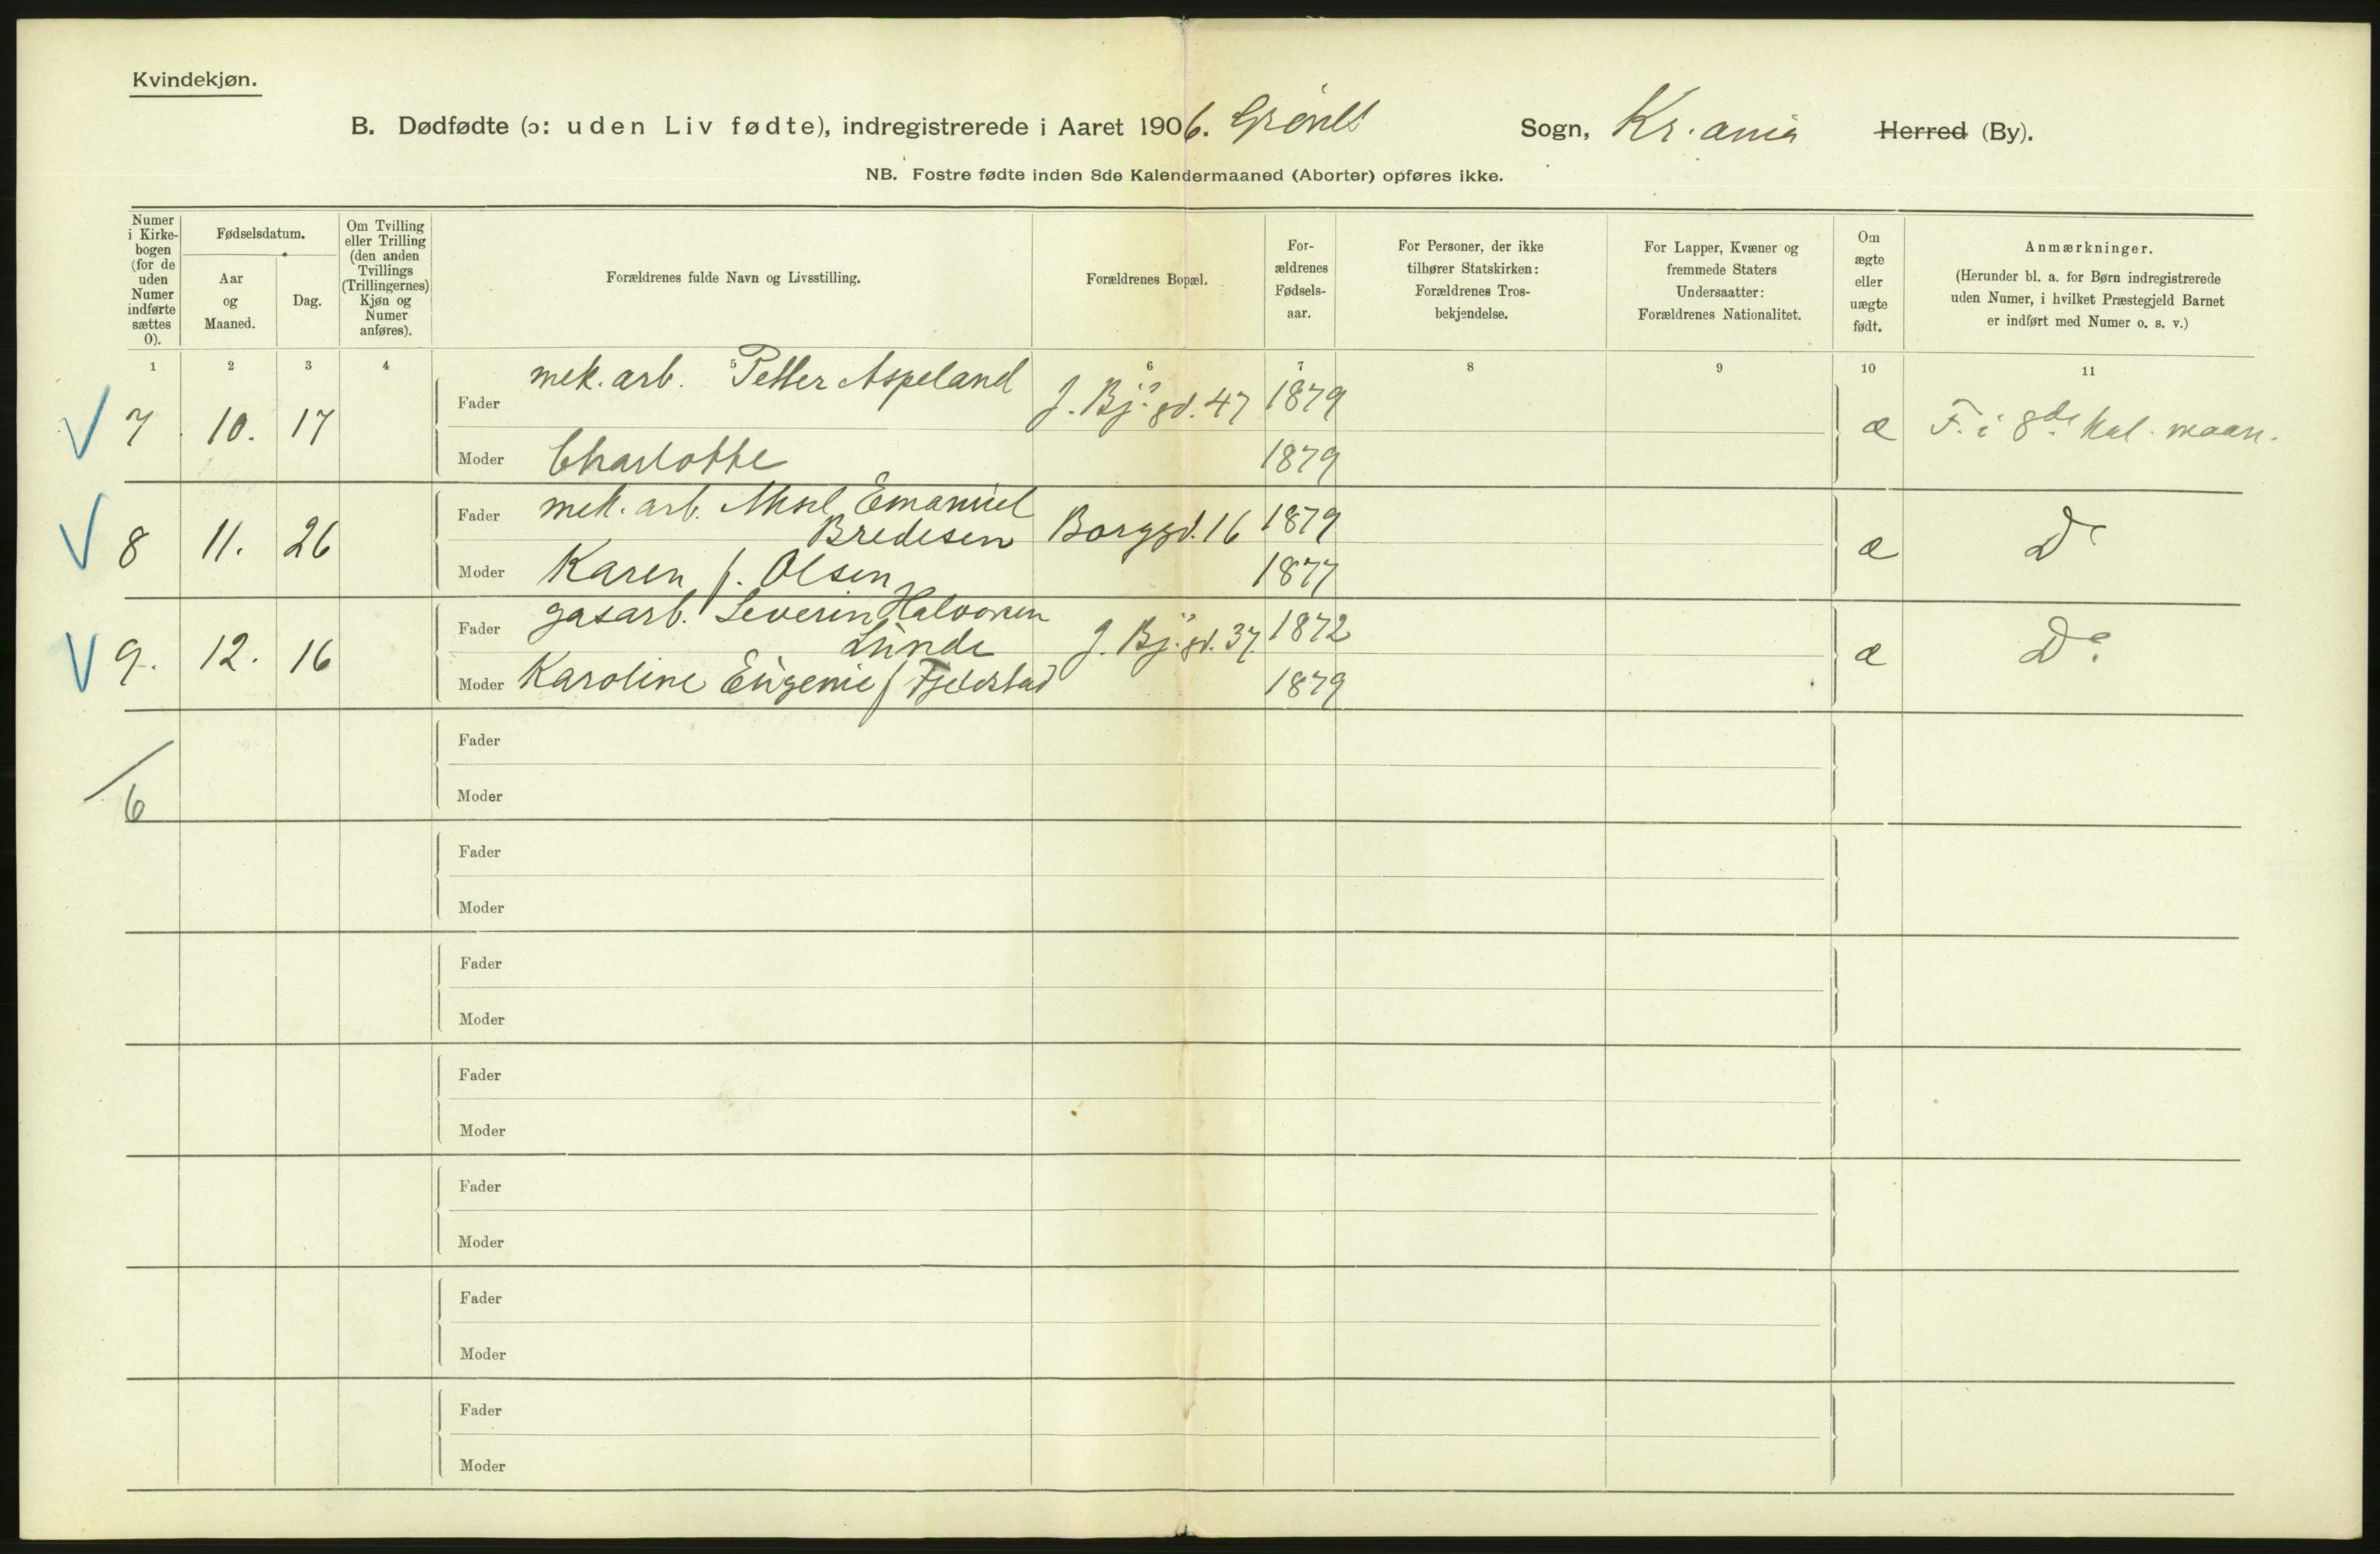 Kvindekjøn.
B. Dødfødte (ɔ: uden Liv fødte), indregistrerede i Aaret 1906. Grønl. Sogn, Kr.ania Herred (By).
NB. Fostre fødte inden 8de Kalendermaaned (Aborter) opføres ikke.
Numer i Kirke-bogen (for de uden Numer indførte sættes 0).
Fødselsdatum.
Aar og Maaned.
Dag.
Om Tvilling eller Trilling (den anden Tvillings (Trillingernes) Kjøn og Numer anføres).
Forældrenes fulde Navn og Livsstilling.
Forældrenes Bopæl.
For-ældrenes Fødsels-aar.
For Personer, der ikke tilhører Statskirken: Forældrenes Tros-bekjendelse.
For Lapper, Kvæner og fremmede Staters Undersaatter: Forældrenes Nationalitet.
Om ægte eller uægte født.
Anmærkninger.
(Herunder bl. a. for Børn indregistrerede uden Numer, i hvilket Præstegjeld Barnet er indført med Numer o. s. v.)
1 2 3 4 5 6 7 8 9 10 11
7 10. 17 Fader mek. arb. Petter Aspeland J. Bj. gd. 47 1879 æ F. i 8de Kal. maan.
Moder Charlotte 1879
8 11. 26 Fader mek. arb. Aksel Emanuel
Bredesen Borggd. 16 1879 æ Do
Moder Karen f. Olsen 1877
9. 12. 16 Fader gasarb. Severin Halvorsen
Lunde J. Bj. gd. 37. 1872 æ Do
Moder Karoline Eugenie f Fjeldstad 1879
6
Fader
Moder
Fader
Moder
Fader
Moder
Fader
Moder
Fader
Moder
Fader
Moder
Fader
Moder